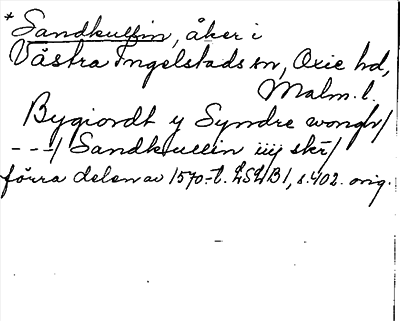 * Sandkullin, åker i
Västra Ingelstads sn, Oxie hd,
Malm. l.
Bygiordt y Syndre wongh/
---/ Sandkullin iiij skr/
förra delen av 1570-t. LSLB1, s. 402. orig.